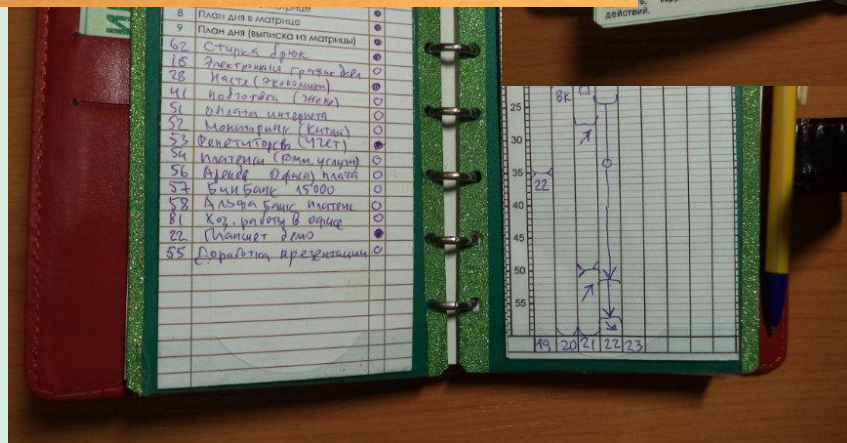 8 План дня в матрице
9 План дня (выписка из матрицы)
62 Стирка брюк
16 Электронная график дела
28 Настя (экономика)
41 Подготовка
51 Оплата интернета
52 Мониторинг (Китай)
53 Репетиторство (учет)
54 Платежи (комм. услуги)
56 Аренда Офиса) плата
57 Бин Банк 15000
58 Альфа Банк платеж
81 Хоз. работы в офисе
22 Планшет демо
55 Доработка презентации
действий.
ВК
25
30
35
22
40
45
50
55
19 20 21 22 23